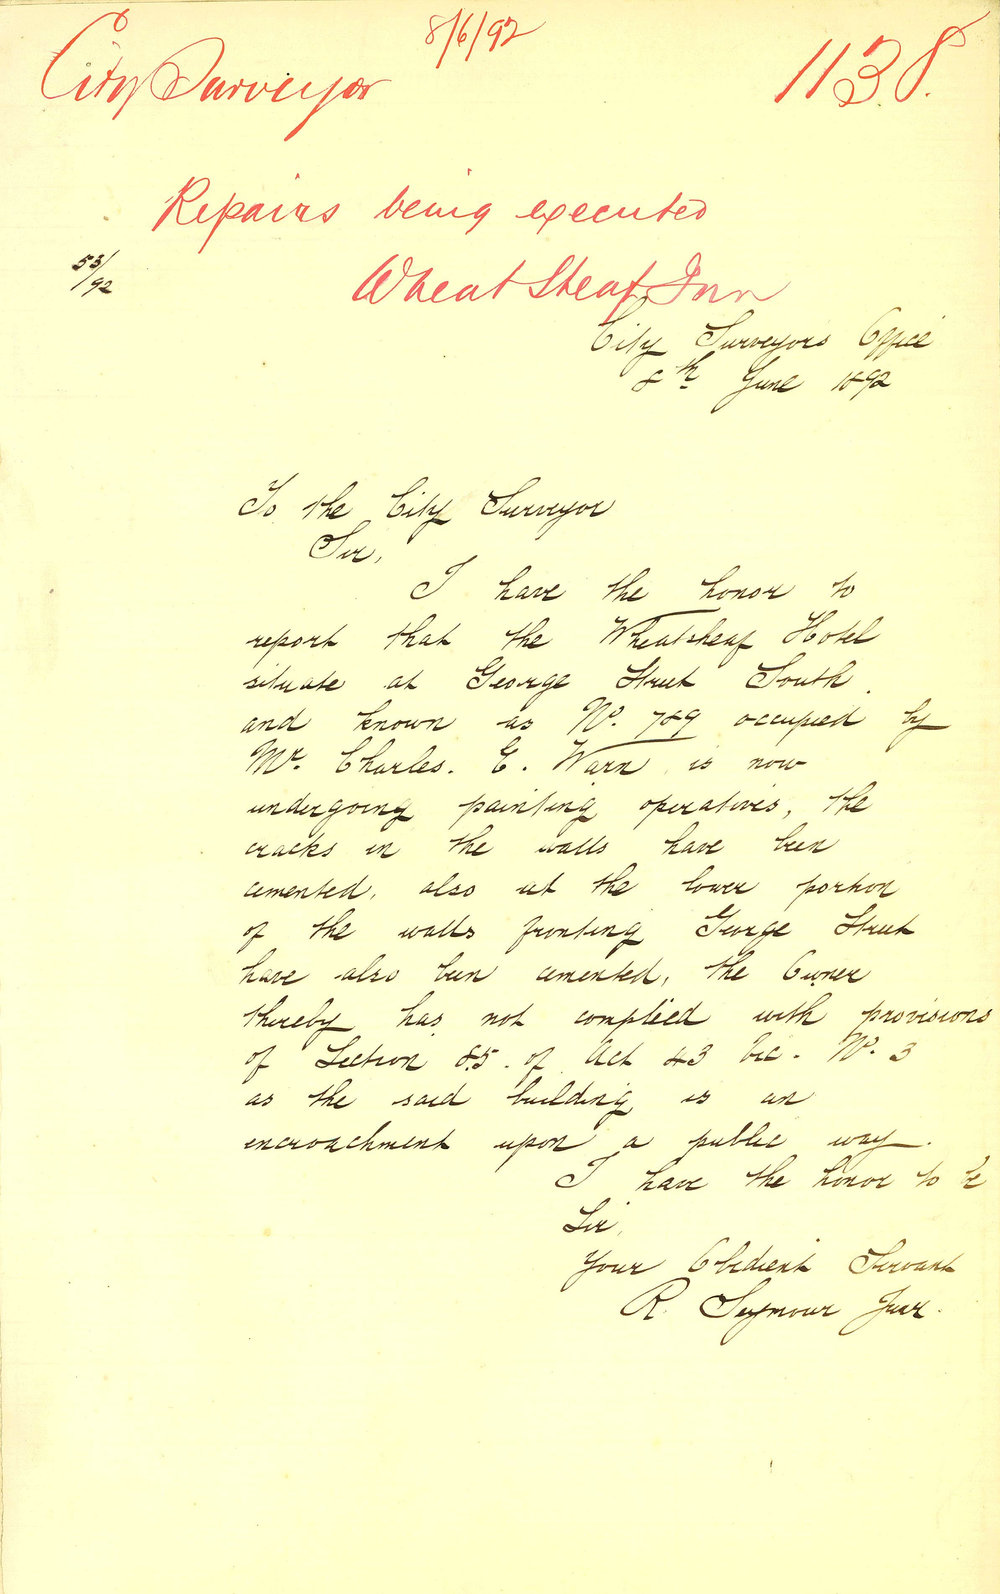 8/6/92
City Surveyor
1138.
Repairs being executed
53/92
Wheat Sheaf Inn
City Surveyors Office
8th June 1892
To the City Surveyor
Sir,
I have the honor to
report that the Wheatsheaf Hotel
situate at George Street South
and known as No. 789 occupied by
Mr. Charles. E. Warn is now
undergoing painting operatives, the
cracks in the walls have been
cemented, also at the lower portion
of the walls fronting George Street
have also been cemented, the Owner
thereby has not complied with provisions
of Section 85. of Act 43 Vic. No. 3
as the said building is an
encroachment upon a public way.
I have the honor to be
Sir,
Your Obedient Servant
R. Seymour Junr.